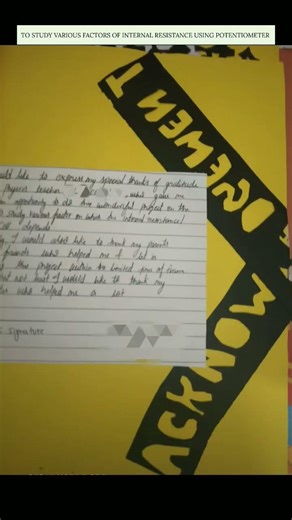 TO STUDY VARIOUS FACTORS OF INTERNAL RESISTANCE USING POTENTIOMETER
ACKNOW
LEGEMENT
like to express my special thanks of gratitude
physics teacher who gave me
opportunity to do this wonderful project on the
study various factor on which the internal resistance
depends
I would also like to thank my parents
friends who helped me a lot in
this project within the limited time
but not least I would like to thank my
who helped me a lot
signature